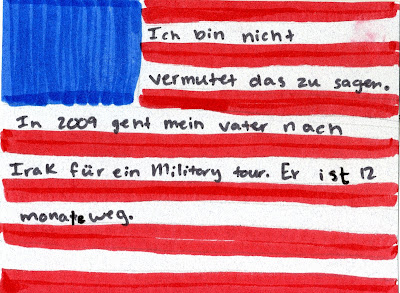 Ich bin nicht
vermutet das zu sagen.
In 2009 geht mein vater nach
Irak für ein Military tour. Er ist 12
monate weg.